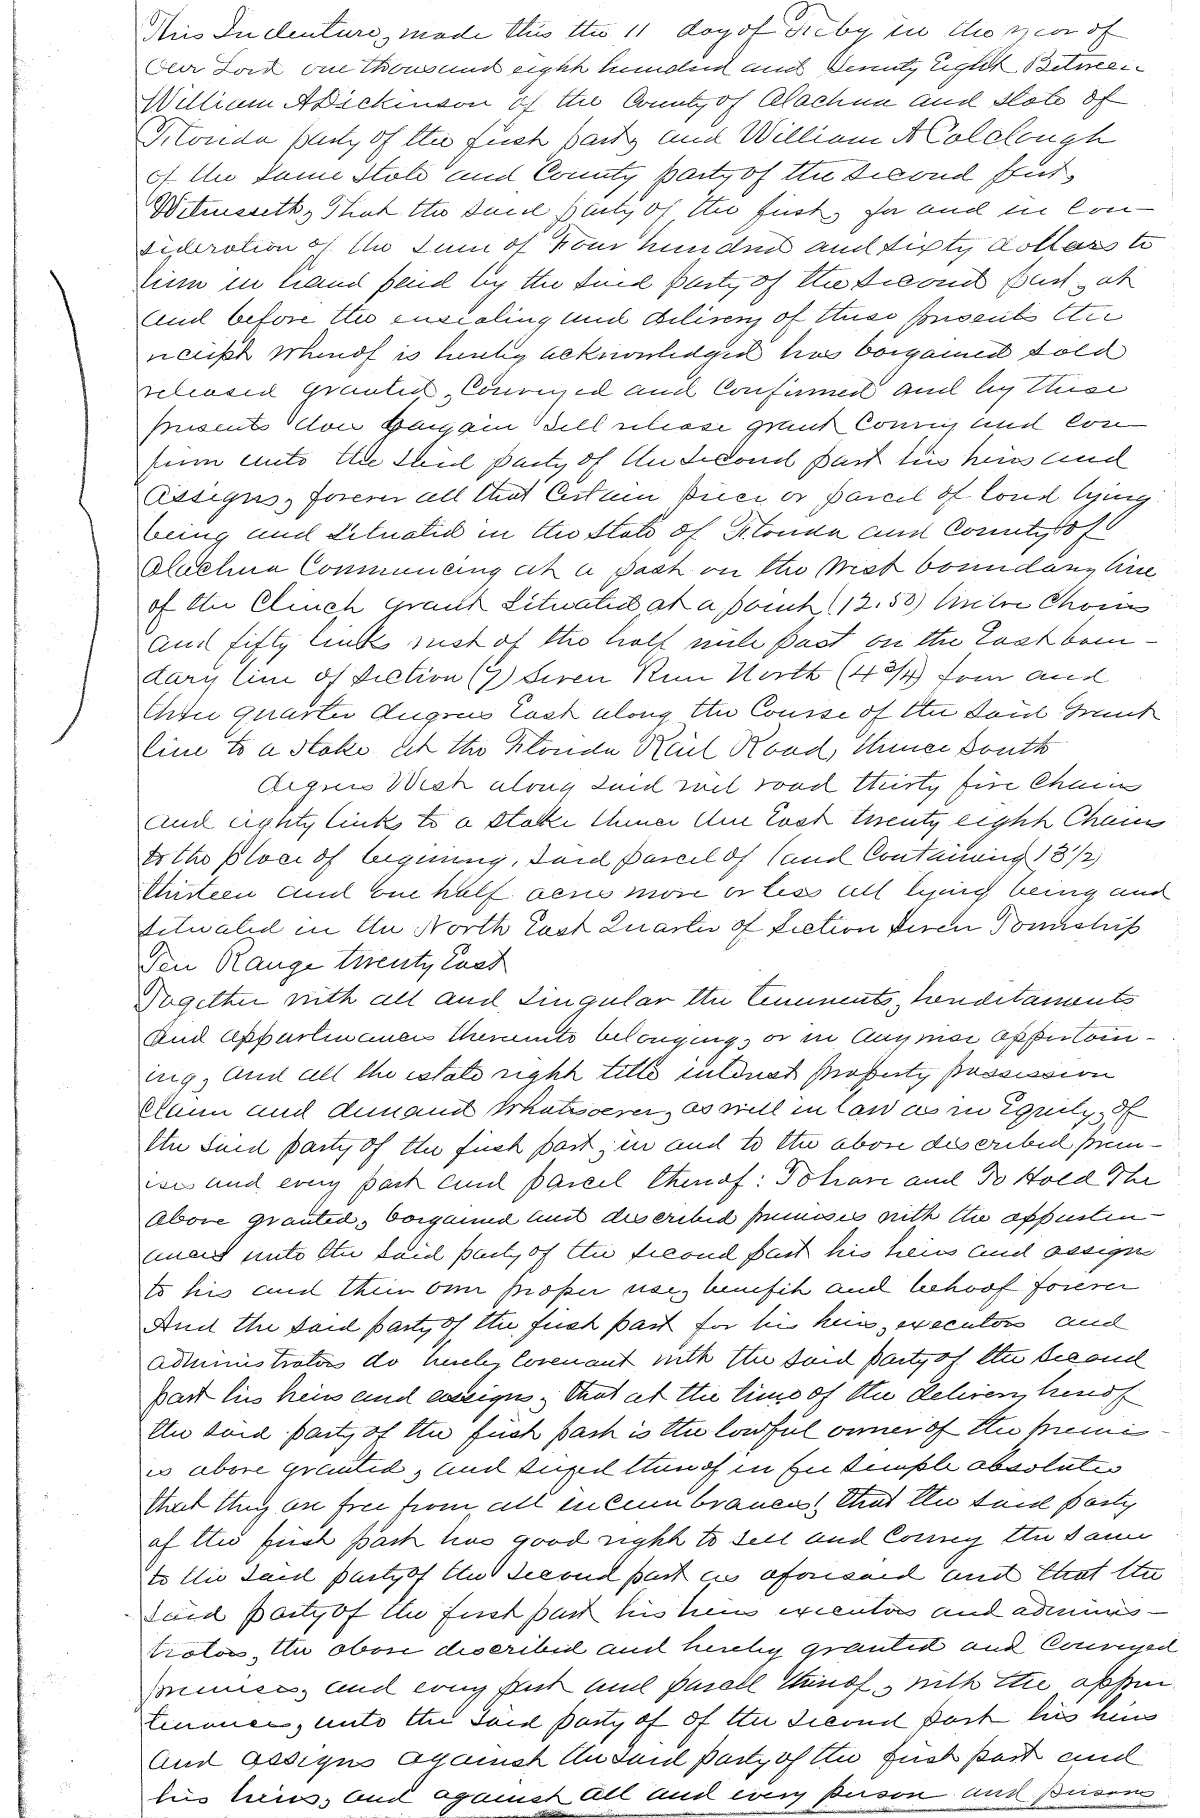 This Indenture, made this the 11 day of Feby in the year of
Our Lord one thousand eight hundred and Seventy Eight Between
William A Dickinson of the County of Alachua and State of
Florida party of the first part, and William A Colclough
of the Same State and County party of the Second part,
Witnesseth, That the Said party of the first, for and in Con-
sideration of the Sum of Four hundred and Sixty dollars to
him in hand paid by the Said party of the Second part, at
and before the ensealing and delivery of these presents the
receipt whereof is hereby acknowledged has bargained Sold
released granted, Conveyed and Confirmed and by these
presents does bargain Sell release grant Convey and con
firm unto the Said party of the Second part his heirs and
Assigns, forever all that Certain piece or parcel of land lying
being and Situated in the State of Florida and County of
Alachua Commencing at a post on the West boundary line
of the Clinch grant Situated at a point (12.50) twelve Chains
and fifty links west of the half mile post on the East boun-
dary line of Section (7) Seven Run North (4 3/4) four and
three quarter degrees East along the Course of the Said Grant
line to a Stake at the Florida Rail Road, thence South
degrees West along Said rail road thirty five Chains
and eighty links to a Stake thence due East twenty eight Chains
to the place of begining, Said parcel of land Containing 13 1/2)
thirteen and one half acres more or less all lying being and
Situated in the North East Quarter of Section Seven Township
Ten Range twenty East
Together with all and Singular the tenements, hereditaments
and appurtenances thereunto belonging, or in anywise appertain-
ing, and all the estate right title interest property possession
claim and demand whatsoever, as well in law as in Equity, of
the Said party of the first part, in and to the above described prem-
ises and every part and parcel thereof: To have and To Hold The
above granted, bargained and described premises with the appurten-
ances unto the Said party of the Second part his heirs and assigns
to his and their own proper use, benefit and behoof forever
And the Said party of the first part for his heirs, executors and
administrators do hereby Covenant with the Said party of the Second
part his heirs and assigns, that at the time of the delivery hereof
the Said party of the first part is the lawful owner of the premis-
es above granted, and Seized thereof in fee Simple absolute
that they are free from all incumbrances, that the Said party
of the first part has good right to Sell and Convey the Same
to the Said party of the Second part as aforesaid and that the
Said party of the first part his heirs executors and adminis-
trators, the above described and hereby granted and Conveyed
premises, and every part and parcell thereof, with the appur
tenances, unto the Said party of of the Second part his heirs
and assigns against the Said party of the first part and
his heirs, and against all and every person and persons